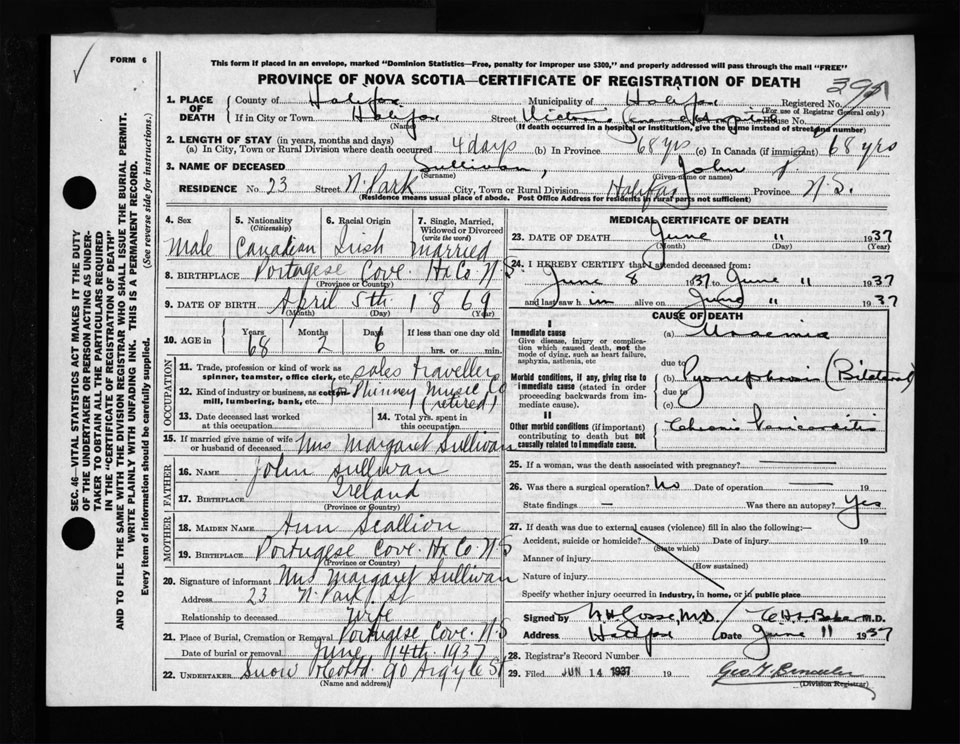 FORM 6
This form if placed in an envelope, marked "Dominion Statistics—Free, penalty for improper use $300," and properly addressed will pass through the mail "FREE"
PROVINCE OF NOVA SCOTIA—CERTIFICATE OF REGISTRATION OF DEATH
1. PLACE OF DEATH County of Halifax Municipality of Halifax Registered No. (For use of Registrar General only)
If in City or Town Halifax (Name) Street Victoria General Hospital House No.
(If death occurred in a hospital or institution, give the name instead of street and number)
2. LENGTH OF STAY (in years, months and days)
(a) In City, Town or Rural Division where death occurred 4 days (b) In Province 68 yrs (c) In Canada (if immigrant) 68 yrs
3. NAME OF DECEASED Sullivan, (Surname) John (Given name or names)
RESIDENCE No. 23 Street N. Park City, Town or Rural Division Halifax Province N.S.
(Residence means usual place of abode. Post Office Address for residents in rural parts not sufficient)
4. Sex Male
5. Nationality (Citizenship) Canadian
6. Racial Origin Irish
7. Single, Married, Widowed or Divorced (write the word) Married
8. BIRTHPLACE Portugese Cove Hx Co. N.S
(Province or Country)
9. DATE OF BIRTH April 5th 1869
(Month) (Day) (Year)
10. AGE in Years 68 Months 2 Days 6 If less than one day old hrs. or min.
OCCUPATION
11. Trade, profession or kind of work as spinner, teamster, office clerk, etc. sales traveller
12. Kind of industry or business, as cotton mill, lumbering, bank, etc. Phinney Music Co (retired)
13. Date deceased last worked at this occupation
14. Total yrs. spent in this occupation
15. If married give name of wife or husband of deceased Mrs Margaret Sullivan
FATHER
16. NAME John Sullivan
17. BIRTHPLACE Ireland
(Province or Country)
MOTHER
18. MAIDEN NAME Ann Scallion
19. BIRTHPLACE Portugese Cove Hx Co. N.S
(Province or Country)
20. Signature of informant Mrs Margaret Sullivan
Address 23 N. Park St
Relationship to deceased Wife
21. Place of Burial, Cremation or Removal Portugese Cove. N.S
Date of burial or removal June 14th 1937
22. UNDERTAKER Snow 90 Argyle St
(Name and address)
MEDICAL CERTIFICATE OF DEATH
23. DATE OF DEATH June 11 1937
(Month) (Day) (Year)
24. I HEREBY CERTIFY that I attended deceased from:
June 8 1937 to June 11 1937
and last saw him alive on June 11 1937
CAUSE OF DEATH
I
Immediate cause
Give disease, injury or complication which caused death, not the mode of dying, such as heart failure, asphyxia, asthenia, etc
(a) Uraemia
due to
Morbid conditions, if any, giving rise to immediate cause (stated in order proceeding backwards from immediate cause).
(b) Pyonephrosis (Bilateral)
due to
(c)
II
Other morbid conditions (if important) contributing to death but not causally related to immediate cause.
Chronic Pericarditis
25. If a woman, was the death associated with pregnancy?
26. Was there a surgical operation? No Date of operation —
State findings — Was there an autopsy? Yes
27. If death was due to external causes (violence) fill in also the following:—
Accident, suicide or homicide? (State which) Date of injury 19
Manner of injury (How sustained)
Nature of injury
Specify whether injury occurred in industry, in home, or in public place
Signed by M.D. M.D.
Address Halifax Date June 11 1937
28. Registrar's Record Number
29. Filed JUN 14 1937 19
(Division Registrar)
SEC. 46—VITAL STATISTICS ACT MAKES IT THE DUTY
OF THE UNDERTAKER OR PERSON ACTING AS UNDERTAKER TO OBTAIN ALL THE PARTICULARS REQUIRED
IN THE "CERTIFICATE OF REGISTRATION OF DEATH"
AND TO FILE THE SAME WITH THE DIVISION REGISTRAR WHO SHALL ISSUE THE BURIAL PERMIT.
WRITE PLAINLY WITH UNFADING INK. THIS IS A PERMANENT RECORD.
Every item of information should be carefully supplied. (See reverse side for instructions.)